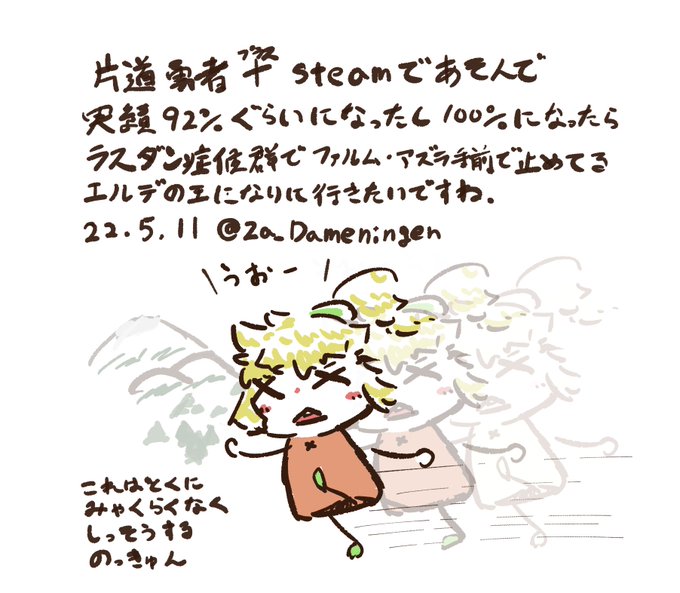 片道勇者プラス+ steamであそんで
実績92%ぐらいになったし100%になったら
ラスダン症候群でファルム・アズラ手前で止めてる
エルデの王になりに行きたいですね.
22.5.11 @Za_Dameningen
\うおー/
これはとくに
みゃくらくなく
しっそうする
のっきゅん